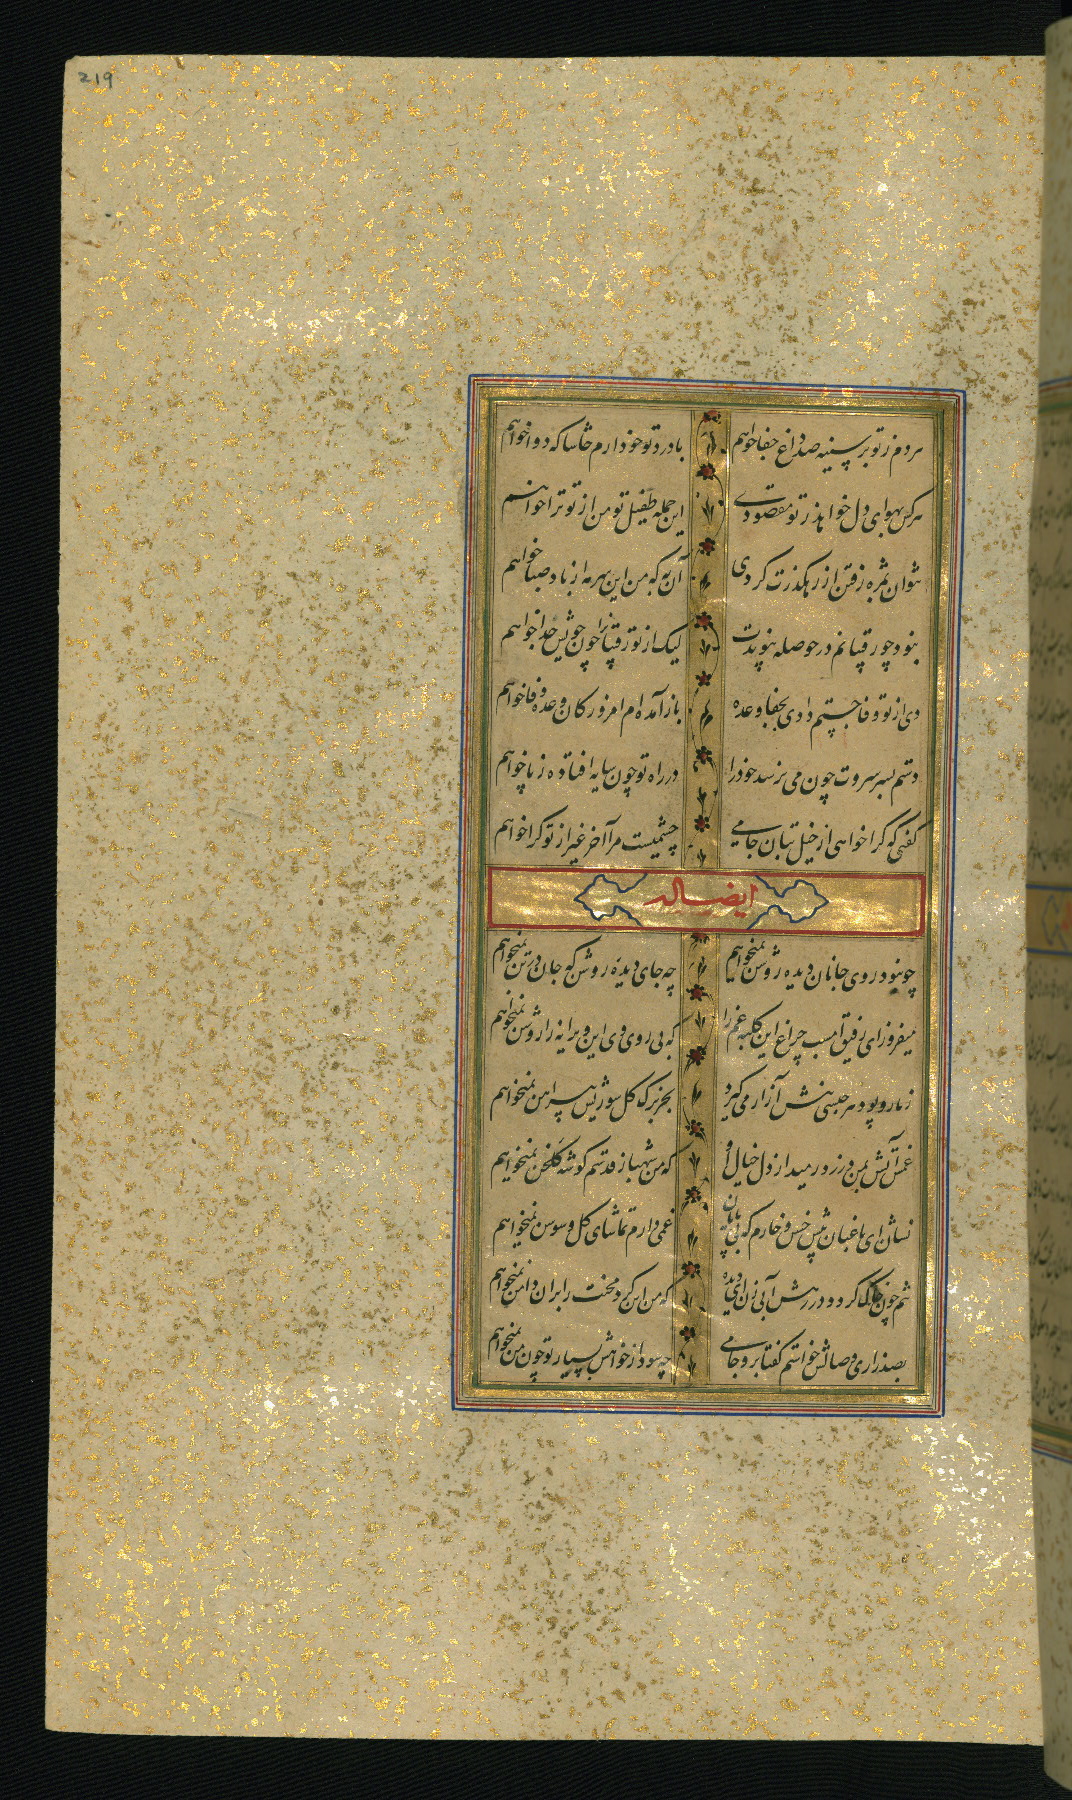 219
هردم ز تو بر سینه صد داغ جفا خواهم
با درد تو خو دارم حاشا که دوا خواهم
هرکس بهوای دل خواهد ز تو مقصودی
این جمله طفیل تو من از تو ترا خواهم
نتوان بمژه رفتن از رهگذرت گردی
آن به که من این سرمه از باد صبا خواهم
نبود چو رقیبانم در حوصله پیوندت
لیک از تو رقیبانرا چون خویش جدا خواهم
دی از تو وفا جستم دادی بجفا وعده
باز آمده‌ام امروز کان وعده وفا خواهم
دستم بسر سروت چون می نرسد خود را
در راه تو چون سایه افتاده ز پا خواهم
گفتی که کرا خواهی از خیل بتان جامی
چشمیست مرا آخر غیر از تو کرا خواهم
ایضا له
چو نبود روی جانان دیده روشن نمیخواهم
چه جای دیدهٔ روشن که جان در تن نمیخواهم
میفروز ای رفیق امشب چراغ این کلبه غم را
که بی روی وی این ویرانه را روشن نمیخواهم
ز تار و پود هر جنسی تنش آزار می‌گیرد
بجز برگ گل سوریش پیراهن نمیخواهم
غمش آتش بمن در زد رمید از دل خیال او
که من شهباز قدسم گوشه گلخن نمیخواهم
نشان ای باغبان پیش خس و خارم که بی یاران
غمی دارم تماشای گل و سوسن نمیخواهم
تنم چون خاک گردد در رهش آبی زن ای دیده
که من این گرد محنت را بران دامن نمیخواهم
بصد زاری وصالش خواستم گفتا برو جامی
چه سود از خواهش بسیار تو چون من نمیخواهم